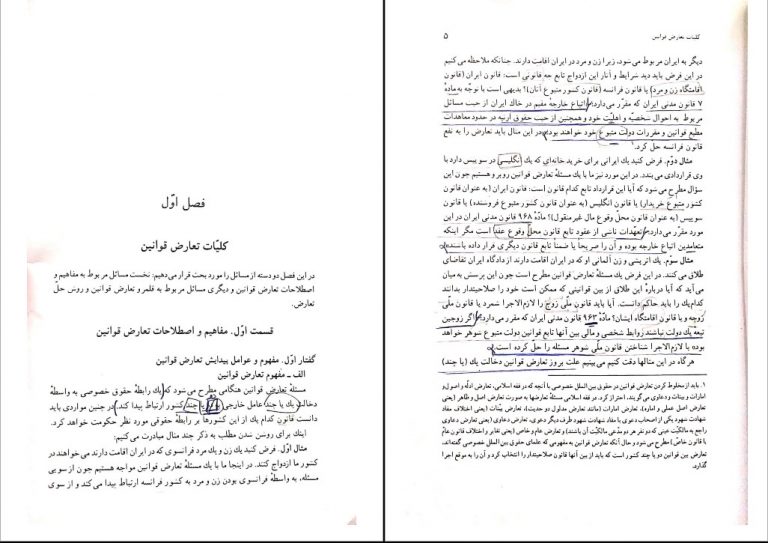 فصل اوّل
کلیّات تعارض قوانین
در این فصل دو دسته از مسائل را مورد بحث قرار می‌دهیم: نخست مسائل مربوط به مفاهیم و
اصطلاحات تعارض قوانین و دیگری مسائل مربوط به قلمرو تعارض قوانین و روش حلّ
تعارض.
قسمت اوّل. مفاهیم و اصطلاحات تعارض قوانین
گفتار اوّل. مفهوم و عوامل پیدایش تعارض قوانین
الف ـ مفهوم تعارض قوانین
مسئلهٔ تعارض قوانین هنگامی مطرح می‌شود که یك رابطهٔ حقوق خصوصی به واسطهٔ
دخالت یك یا چند عامل خارجی به دو یا چند کشور ارتباط پیدا کند. در چنین مواردی باید
دانست قانون کدام یك از این کشورها بر رابطهٔ حقوقی مورد نظر حکومت خواهد کرد.
اینك برای روشن شدن مطلب به ذکر چند مثال مبادرت می‌کنیم:
مثال اوّل. فرض کنید یك زن و یك مرد فرانسوی که در ایران اقامت دارند می‌خواهند در
کشور ما ازدواج کنند. در اینجا ما با یك مسئلهٔ تعارض قوانین مواجه هستیم چون از سویی
مسئله، به واسطهٔ فرانسوی بودن زن و مرد به کشور فرانسه ارتباط پیدا می‌کند و از سوی
کلیات تعارض قوانین ۵
دیگر به ایران مربوط می‌شود، زیرا زن و مرد در ایران اقامت دارند. چنانکه ملاحظه می‌کنیم
در این فرض باید دید شرایط و آثار این ازدواج تابع چه قانونی است: قانون ایران (قانون
اقامتگاه زن و مرد) یا قانون فرانسه (قانون کشور متبوع آنان)؟ بدیهی است با توجّه به مادهٔ
۷ قانون مدنی ایران که مقرّر می‌دارد: «اتباع خارجه مقیم در خاك ایران از حیث مسائل
مربوط به احوال شخصیّه و اهلیّت خود و همچنین از حیث حقوق ارثیه در حدود معاهدات
مطیع قوانین و مقررات دولت متبوع خود خواهند بود» در این مثال باید تعارض را به نفع
قانون فرانسه حل کرد.۱
مثال دوّم. فرض کنید یك ایرانی برای خرید خانه‌ای که یك انگلیسی در سوییس دارد با
وی قراردادی می‌بندد. در این مورد نیز ما با یك مسئلهٔ تعارض قوانین روبرو هستیم چون این
سؤال مطرح می‌شود که آیا این قرارداد تابع کدام قانون است: قانون ایران (به عنوان قانون
کشور متبوع خریدار) یا قانون انگلیس (به عنوان قانون کشور متبوع فروشنده) یا قانون
سوییس (به عنوان قانون محلّ وقوع مال غیرمنقول)؟ مادّهٔ ۹۶۸ قانون مدنی ایران در این
مورد مقرّر می‌دارد: «تعهّدات ناشی از عقود تابع قانون محلّ وقوع عقد است مگر اینکه
متعاقدین اتباع خارجه بوده و آن را صریحاً یا ضمناً تابع قانون دیگری قرار داده باشند».
مثال سوّم. یك اتریشی و زن آلمانی او که در ایران اقامت دارند از دادگاه ایران تقاضای
طلاق می‌کنند. در این فرض یك مسئلهٔ تعارض قوانین مطرح است چون این پرسش به میان
می‌آید که آیا دربارهٔ این طلاق از بین قوانینی که ممکن است خود را صلاحیتدار بدانند
کدام یك را باید حاکم دانست. آیا باید قانون ملّی زوج را لازم‌الاجرا شمرد یا قانون ملّی
زوجه و یا قانون اقامتگاه ایشان؟ مادّهٔ ۹۶۳ قانون مدنی ایران که مقرر می‌دارد: «اگر زوجین
تبعهٔ یك دولت نباشند روابط شخصی و مالی بین آنها تابع قوانین دولت متبوع شوهر خواهد
بود» با لازم‌الاجرا شناختن قانون ملّی شوهر مسئله را حل کرده است.
هرگاه در این مثالها دقت کنیم می‌بینیم علت بروز تعارض قوانین دخالت یك (یا چند)
۱. باید از مخلوط کردن تعارض قوانین در حقوق بین الملل خصوصی با آنچه که در فقه اسلامی، تعارض ادلّه و اصول و
امارات و بینات و دعاوی می‌گویند، احتراز کرد. در فقه اسلامی مسئلهٔ تعارضها به صورت تعارض اصل و ظاهر (یعنی
تعارض اصل عملی و اماره)، تعارض امارات (مانند تعارض مدلول دو حدیث)، تعارض بیّنات (یعنی اختلاف مفاد
شهادت شهود یکی از اصحاب دعوی با مفاد شهادت شهود طرف دیگر دعوی)، تعارض دعاوی (یعنی تعارض دعاوی
راجع به مالکیّت عینی که دو نفر هر دو مدّعی مالکیّت آن باشند) و تعارض عام و خاص (یعنی تغایر و اختلاف قانون عام
با قانون خاص) مطرح می‌شود و حال آنکه تعارض قوانین به مفهومی که علمای حقوق بین الملل خصوصی گفته‌اند،
تعارض بین قوانین دو یا چند کشور است که باید از بین آنها قانون صلاحیتدار را انتخاب کرد و آن را به موقع اجرا
گذارد.